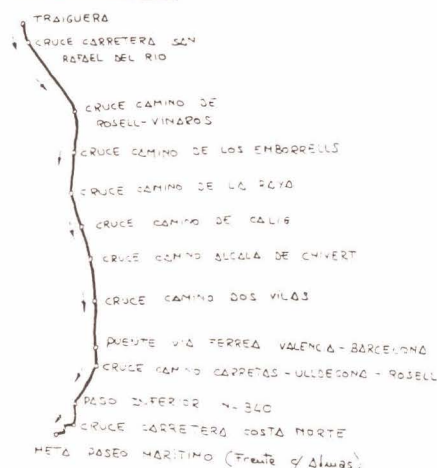 TRAIGUERA
CRUCE CARRETERA SAN
RAFAEL DEL RIO
CRUCE CAMINO DE
ROSELL-VINAROS
CRUCE CAMINO DE LOS EMBORRELLS
CRUCE CAMINO DE LA RAYA
CRUCE CAMINO DE CALIG
CRUCE CAMINO ALCALA DE CHIVERT
CRUCE CAMINO DOS VILAS
PUENTE VIA FERREA VALENCIA-BARCELONA
CRUCE CAMINO CARRETAS-ULLDECONA-ROSELL
PASO INFERIOR N-340
CRUCE CARRETERA COSTA NORTE
META PASEO MARITIMO (Frente c/ Almas).